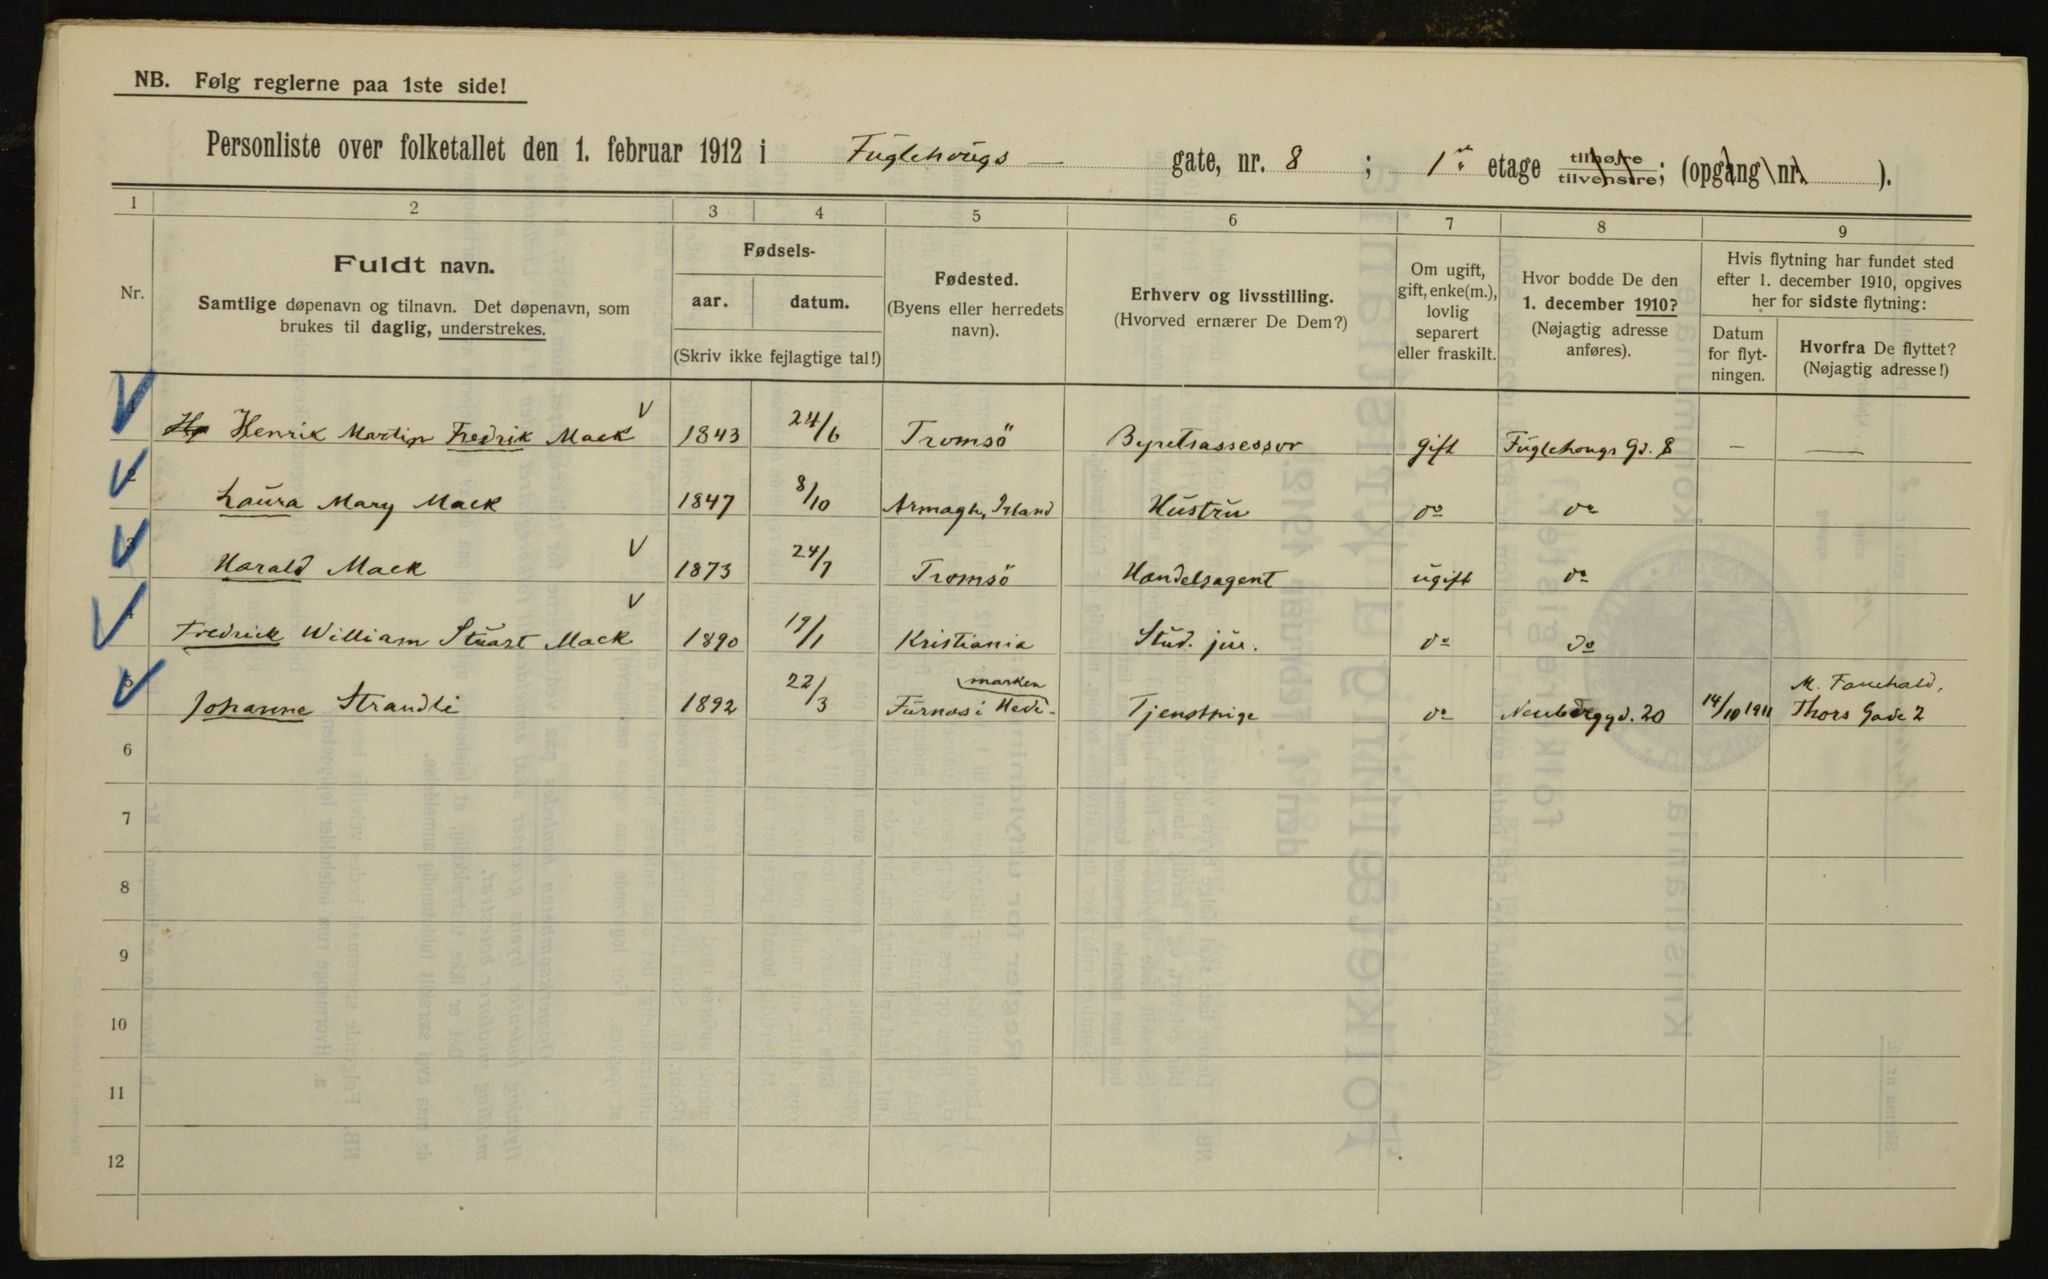 NB. Følg reglerne paa 1ste side!
Personliste over folketallet den 1. februar 1912 i Fuglehougs — gate, nr. 8 ; 1ste etage tilhøjre tilvenstre; (opgang nr. ).
1 2 3 4 5 6 7 8 9
Nr.
Fuldt navn.
Samtlige døpenavn og tilnavn. Det døpenavn, som
brukes til daglig, understrekes.
Fødsels-
aar. datum.
(Skriv ikke fejlagtige tal!)
Fødested.
(Byens eller herredets
navn).
Erhverv og livsstilling.
(Hvorved ernærer De Dem?)
Om ugift,
gift, enke(m.),
lovlig
separert
eller fraskilt.
Hvor bodde De den
1. december 1910?
(Nøjagtig adresse
anføres).
Hvis flytning har fundet sted
efter 1. december 1910, opgives
her for sidste flytning:
Datum
for flyt-
ningen.
Hvorfra De flyttet?
(Nøjagtig adresse!)
Henrik Martin Fredrik Mack 1843 24/6 Tromsö Byretsassessor gift Fuglehougs Gd. 8 — —
2 Laura Mary Mack 1847 8/10 Armagh, Irland Hustru do do
3 Harald Mack 1873 24/7 Tromsö Handelsagent ugift do
4 Fredrick William Stuart Mack 1890 19/1 Kristiania Stud. jur. do do
5 Johanne Strandli 1892 22/3 Furnes i Hedemarken Tjenstpige do Neuberggd. 20 14/10 1911 M. Fouchald,
Thors Gade 2
6
7
8
9
10
11
12